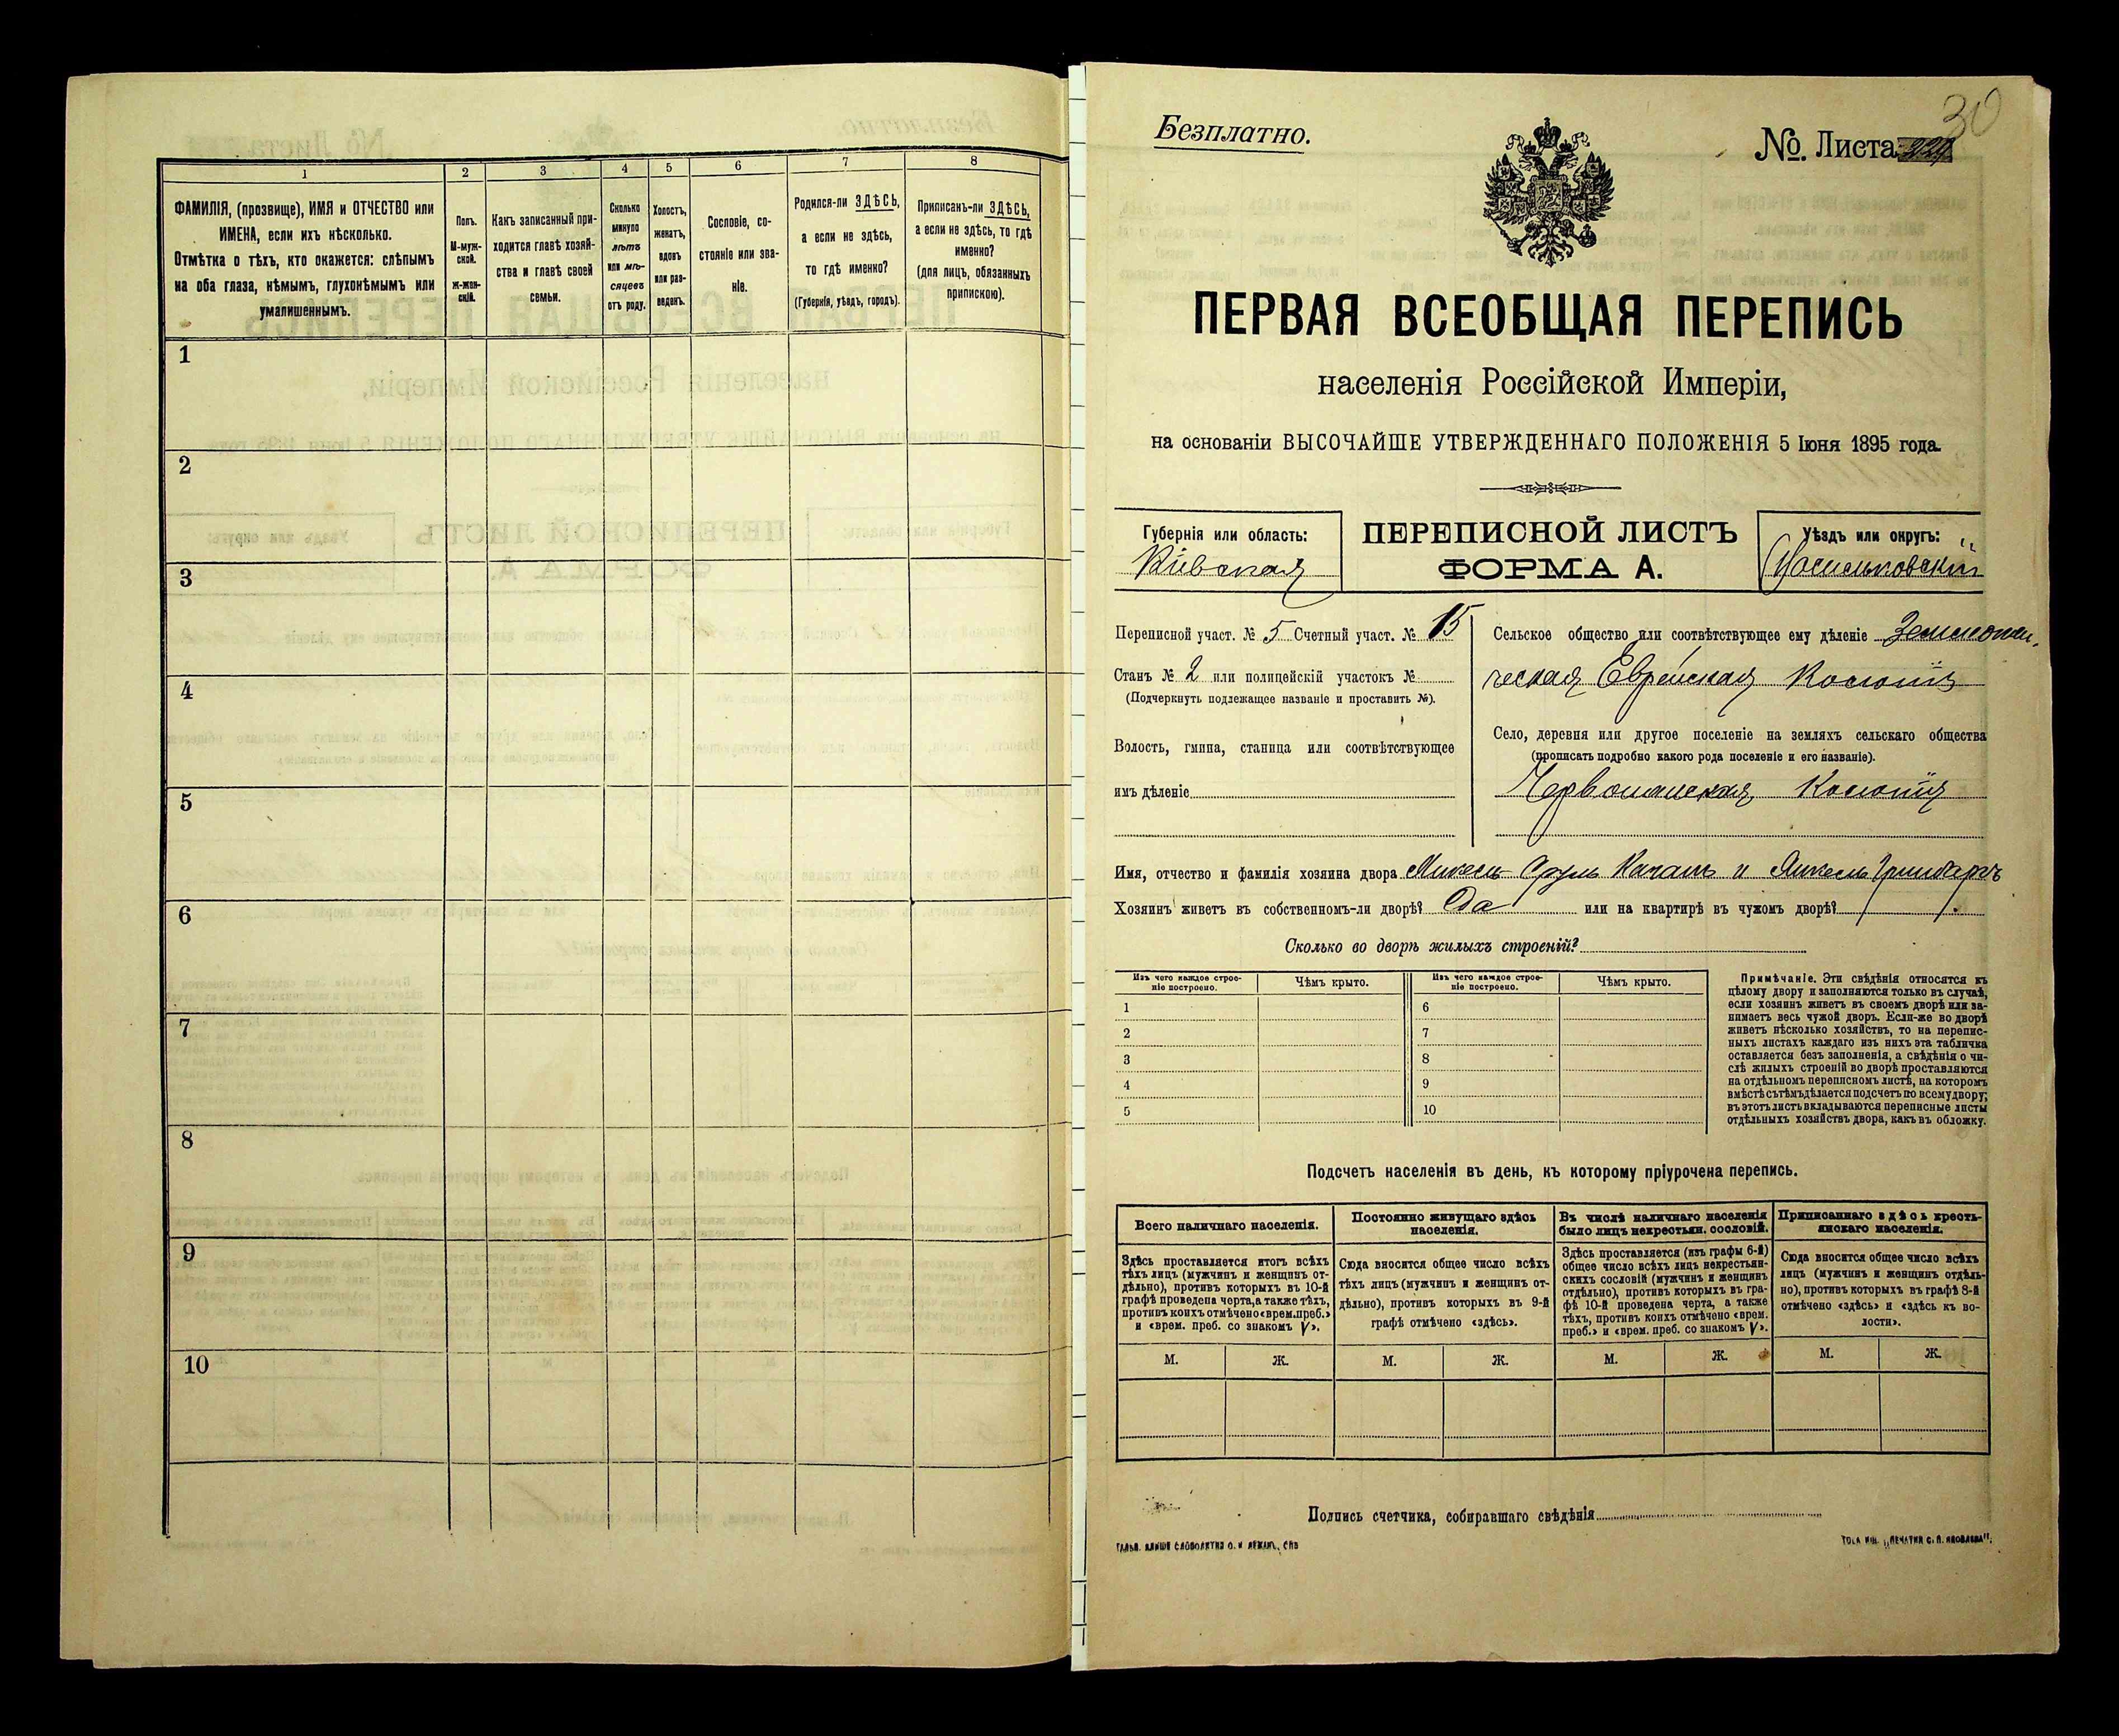 1
2
3
4
5
6
7
8
ФАМИЛІЯ, (прозвище), ИМЯ и ОТЧЕСТВО или
ИМЕНА, если ихъ нѣсколько.
Отмѣтка о тѣхъ, кто окажется: слѣпымъ
на оба глаза, нѣмымъ, глухонѣмымъ или
умалишеннымъ.
Полъ.
М-муж-
ской.
Ж-жен-
скій.
Какъ записанный при-
ходится главѣ хозяй-
ства и главѣ своей
семьи.
Сколько
минуло
лѣтъ
или мѣ-
сяцевъ
отъ роду.
Холостъ,
женатъ,
вдовъ
или раз-
веденъ.
Сословіе, со-
стояніе или зва-
ніе.
Родился-ли ЗДѢСЬ,
а если не здѣсь,
то гдѣ именно?
(Губернія, уѣздъ, городъ).
Приписанъ-ли ЗДѢСЬ,
а если не здѣсь, то гдѣ
именно?
(для лицъ, обязанныхъ
припискою).
1
2
3
4
5
6
7
8
9
10
30
Безплатно.
№. Листа
ПЕРВАЯ ВСЕОБЩАЯ ПЕРЕПИСЬ
населенія Россійской Имперіи,
на основаніи ВЫСОЧАЙШЕ УТВЕРЖДЕННАГО ПОЛОЖЕНІЯ 5 Іюня 1895 года.
Губернія или область:
Кіевская
ПЕРЕПИСНОЙ ЛИСТЪ
ФОРМА А.
Уѣздъ или округъ:
Васильковскій
Переписной участ. № 5 Счетный участ. № 15
Станъ № 2 или полицейскій участокъ №
(Подчеркнуть подлежащее названіе и проставить №).
Волость, гмина, станица или соотвѣтствующее
имъ дѣленіе
Сельское общество или соотвѣтствующее ему дѣленіе
Еврейская Колонія
Село, деревня или другое поселеніе на земляхъ сельскаго общества
(прописать подробно какого рода поселеніе и его названіе).
Колонія
Имя, отчество и фамилія хозяина двора и
Хозяинъ живетъ въ собственномъ-ли дворѣ? Да или на квартирѣ въ чужомъ дворѣ?
Сколько во дворѣ жилыхъ строеній?
Изъ чего каждое строе-
ніе построено.
Чѣмъ крыто.
Изъ чего каждое строе-
ніе построено.
Чѣмъ крыто.
1
2
3
4
5
6
7
8
9
10
Примѣчаніе. Эти свѣдѣнія относятся къ
цѣлому двору и заполняются только въ случаѣ,
если хозяинъ живетъ въ своемъ дворѣ или за-
нимаетъ весь чужой дворъ. Если-же во дворѣ
живетъ нѣсколько хозяйствъ, то на перепис-
ныхъ листахъ каждаго изъ нихъ эта табличка
оставляется безъ заполненія, а свѣдѣнія о чи-
слѣ жилыхъ строеній во дворѣ проставляются
на отдѣльномъ переписномъ листѣ, на которомъ
вмѣстѣ съ тѣмъ дѣлается подсчетъ по всему двору;
въ этотъ листъ вкладываются переписные листы
отдѣльныхъ хозяйствъ двора, какъ въ обложку.
Подсчетъ населенія въ день, къ которому пріурочена перепись.
Всего наличнаго населенія.
Здѣсь проставляется итогъ всѣхъ
тѣхъ лицъ (мужчинъ и женщинъ от-
дѣльно), противъ которыхъ въ 10-й
графѣ проведена черта, а также тѣхъ,
противъ коихъ отмѣчено «врем. преб.»
и «врем. преб. со знакомъ V».
Постоянно живущаго здѣсь
населенія.
Сюда вносится общее число всѣхъ
тѣхъ лицъ (мужчинъ и женщинъ от-
дѣльно), противъ которыхъ въ 9-й
графѣ отмѣчено «здѣсь».
Въ числѣ наличнаго населенія
было лицъ некрестьян. сословій.
Здѣсь проставляется (изъ графы 6-й)
общее число всѣхъ лицъ некрестьян-
скихъ сословій (мужчинъ и женщинъ
отдѣльно), противъ которыхъ въ гра-
фѣ 10-й проведена черта, а также
тѣхъ, противъ коихъ отмѣчено «врем.
преб.» и «врем. преб. со знакомъ V».
Приписаннаго здѣсь кресть-
янскаго населенія.
Сюда вносится общее число всѣхъ
лицъ (мужчинъ и женщинъ отдѣль-
но), противъ которыхъ въ графѣ 8-й
отмѣчено «здѣсь» и «здѣсь къ во-
лости».
М. Ж. М. Ж. М. Ж. М. Ж.
Подпись счетчика, собиравшаго свѣдѣнія